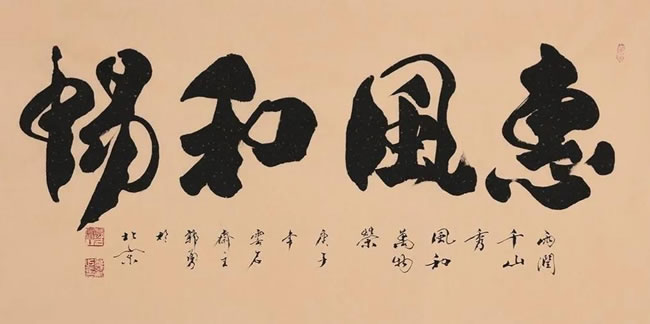 惠風和暢
雨潤
千山
秀
風和
萬物
榮
庚子
年
雲石
齋主
於
北京